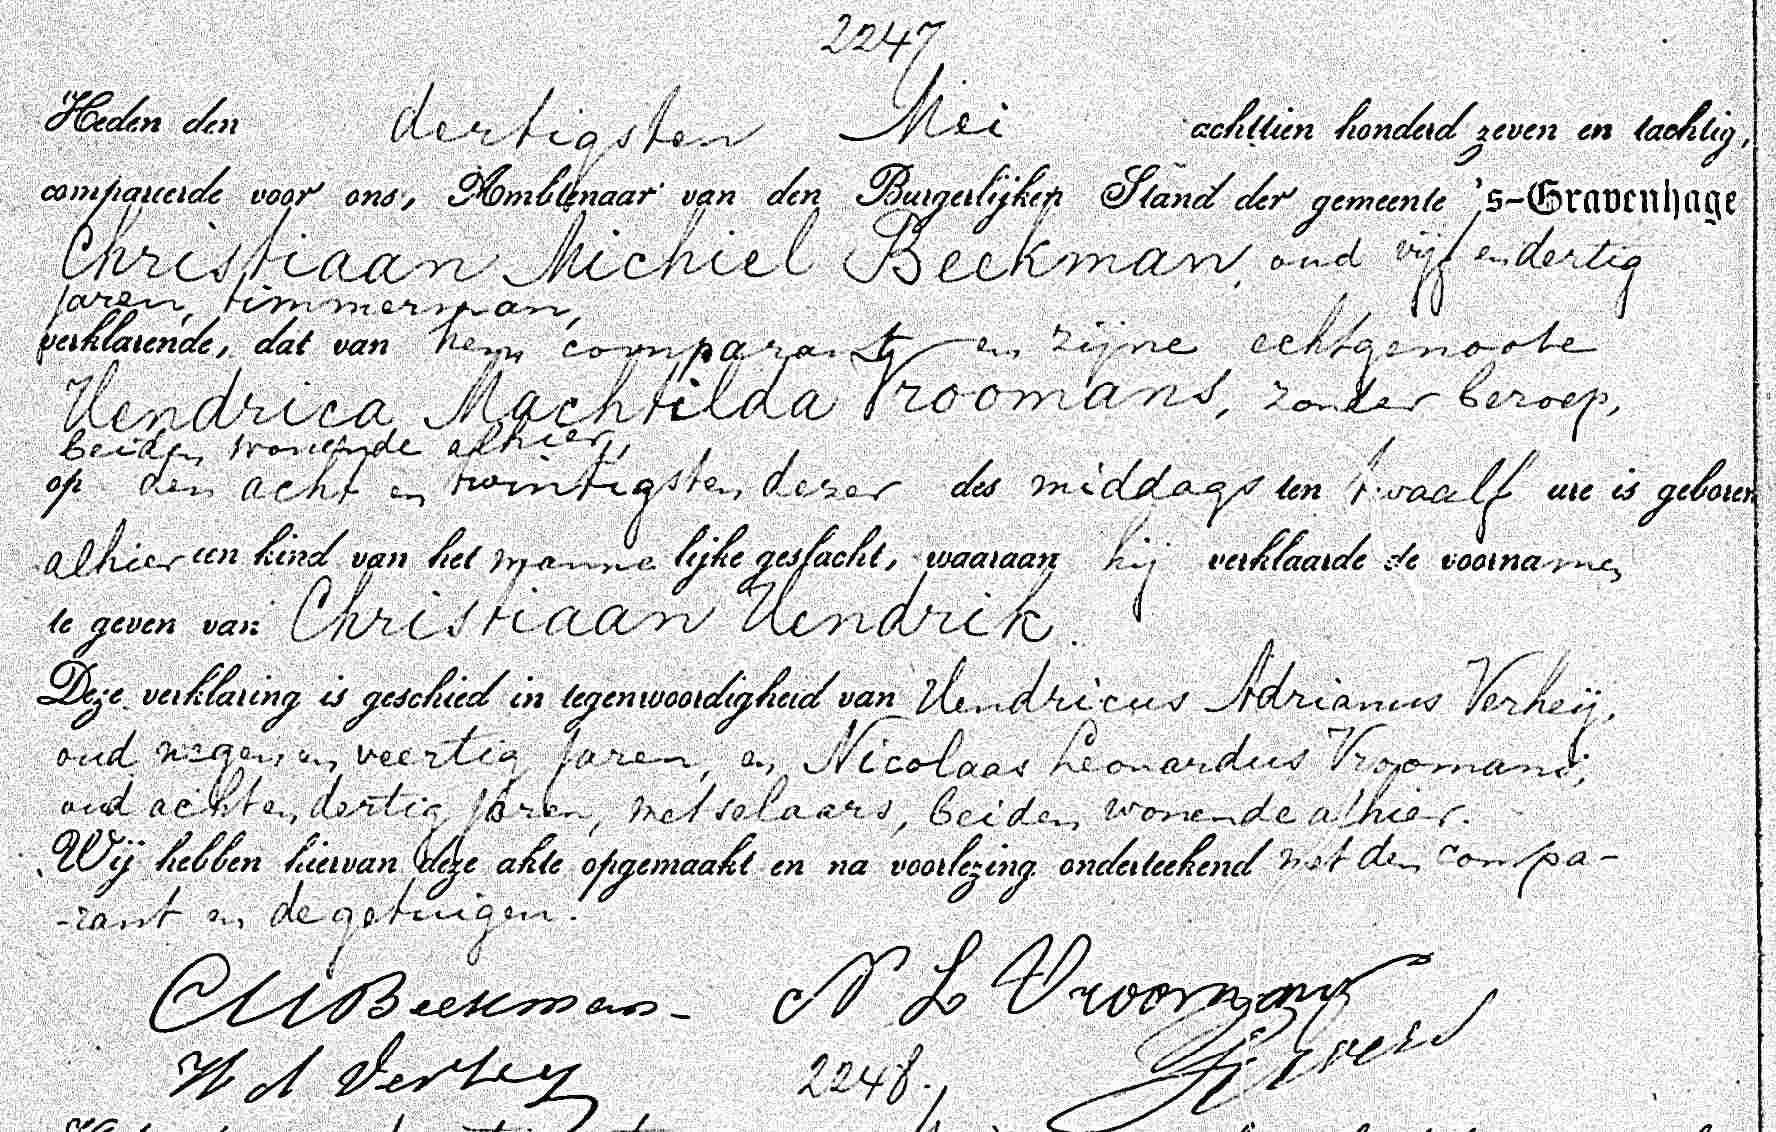 2247
Heden den dertigsten Mei achttien honderd zeven en tachtig,
compareerde voor ons, Ambtenaar van den Burgerlijken Stand der gemeente 's-Gravenhage
Christiaan Michiel Beekman, oud vijf en dertig
jaren, timmerman,
verklarende, dat van hem comparant en zijne echtgenoote
Hendrica Machtilda Vroomans, zonder beroep,
beiden wonende alhier,
op den acht en twintigsten dezer des middags ten twaalf ure is geboren
alhier een kind van het mannelijke geslacht, waaraan hij verklaarde de voornamen
te geven van Christiaan Hendrik.
Deze verklaring is geschied in tegenwoordigheid van Hendricus Adrianus Verheij,
oud negen en veertig jaren, en Nicolaas Leonardus Vroomans,
oud acht en dertig jaren, metselaars, beiden wonende alhier.
Wij hebben hiervan deze akte opgemaakt en na voorlezing onderteekend met den compa-
-rant en de getuigen.
CM Beekman N L Vroomans
H A Verheij 2248.